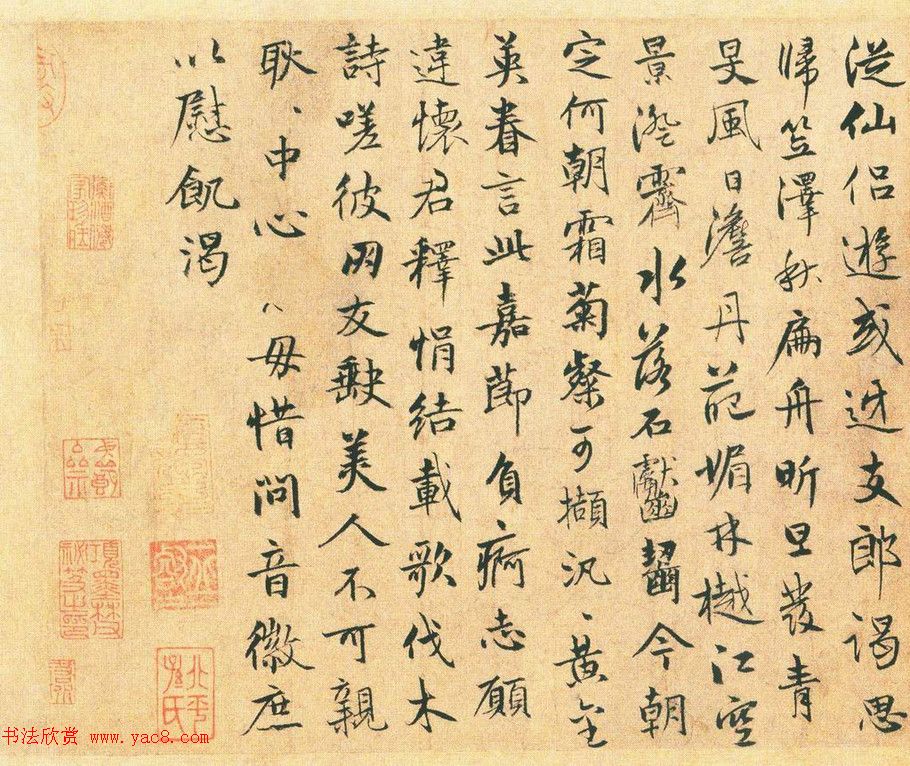 從仙侣遊或迓支郎謁思
歸笠澤秋扁舟昕旦發青
旻風日澹丹葩媚林樾江空
景澄霽水落石巘齧今朝
定何朝霜菊粲可擷汎、黄金
英眷言此嘉節負痾志願
違懷君釋悁結載歌伐木
詩嗟彼朋友缺美人不可親
耿、中心毋惜問音徽庶
以慰飢渴
书法欣赏 www.yac8.com